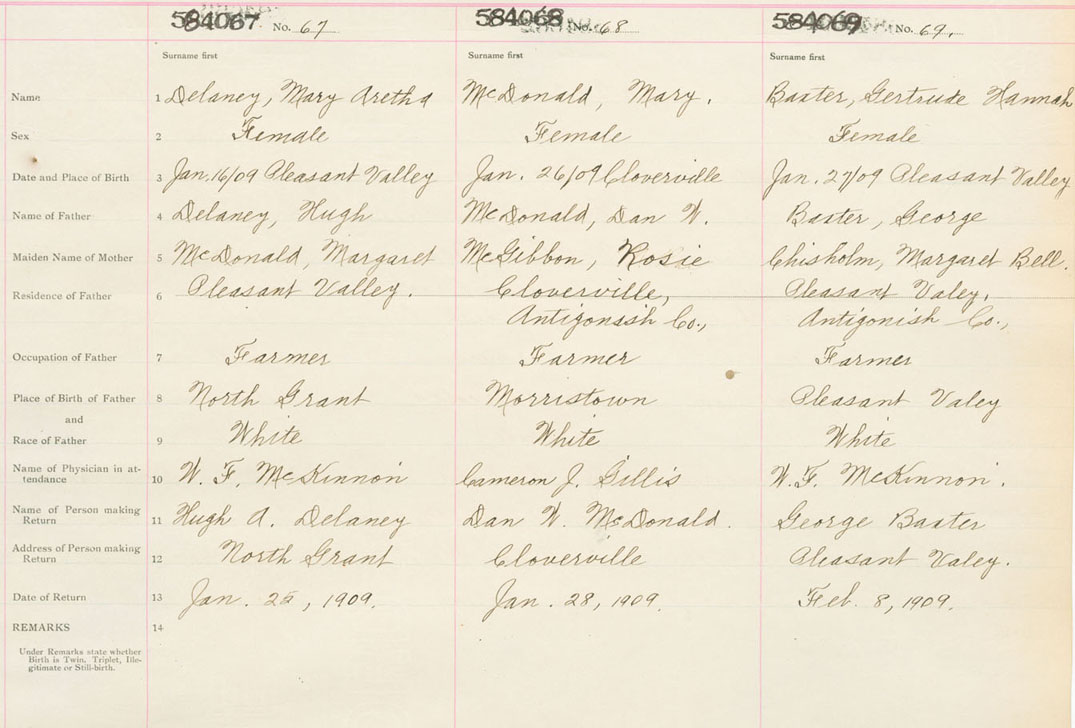 584067 No. 67 584068 No. 68 584069 No. 69.
Surname first Surname first Surname first
Name 1 Delaney, Mary Aretha McDonald, Mary. Baxter, Gertrude Hannah
Sex 2 Female Female Female
Date and Place of Birth 3 Jan. 16/09 Pleasant Valley Jan. 26/09 Cloverville Jan. 27/09 Pleasant Valley
Name of Father 4 Delaney, Hugh McDonald, Dan W. Baxter, George
Maiden Name of Mother 5 McDonald, Margaret McGibbon, Rosie Chisholm, Margaret Bell.
Residence of Father 6 Pleasant Valley. Cloverville, Pleasant Valey,
Antigonish Co., Antigonish Co.,
Occupation of Father 7 Farmer Farmer Farmer
Place of Birth of Father 8 North Grant Morristown Pleasant Valey
and
Race of Father 9 White White White
Name of Physician in at-
tendance 10 W. F. McKinnon Cameron J. Gillis W. F. McKinnon.
Name of Person making
Return 11 Hugh A. Delaney Dan W. McDonald. George Baxter
Address of Person making
Return 12 North Grant Cloverville Pleasant Valey.
Date of Return 13 Jan. 25, 1909. Jan. 28, 1909. Feb. 8, 1909.
REMARKS 14
Under Remarks state whether
Birth is Twin, Triplet, Ille-
gitimate or Still-birth.